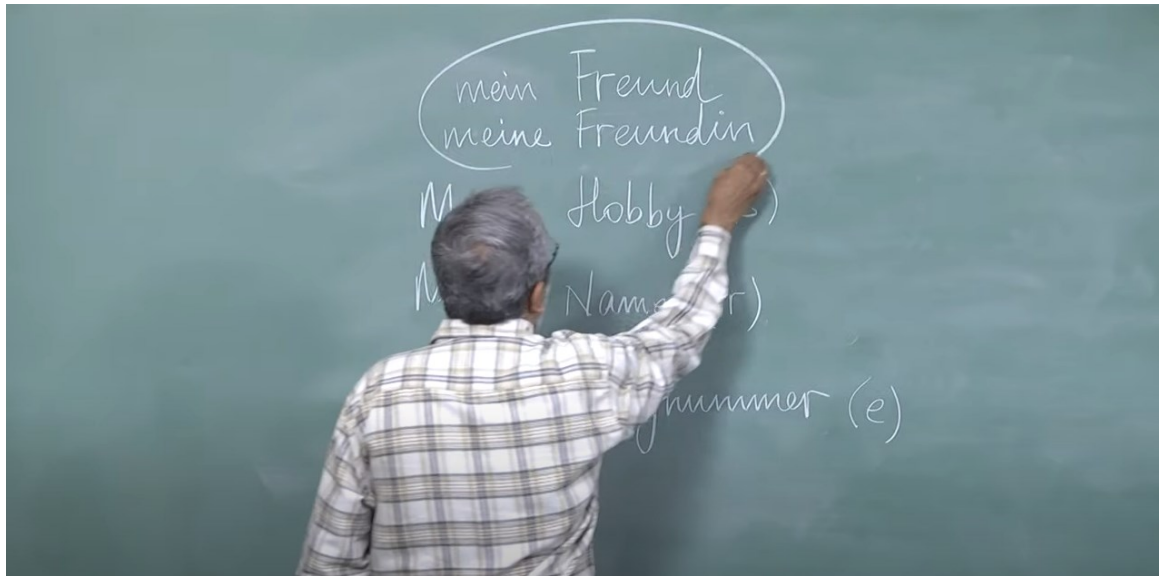 mein Freund
meine Freundin
Hobby
Name r)
nummer (e)